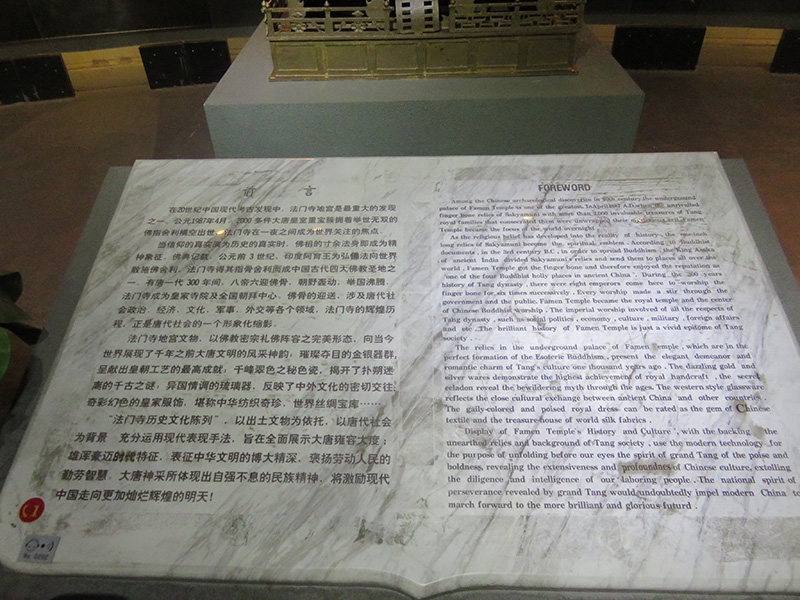 前 言
在20世纪中国现代考古发现中，法门寺地宫是最重大的发现
之一。公元1987年4月，2000多件大唐皇室重宝簇拥着举世无双的
佛指舍利横空出世，法门寺在一夜之间成为世界关注的焦点。
当信仰的真实演为历史的真实时，佛祖的寸余法身即成为精
神象征。佛典记载，公元前3世纪，印度阿育王为弘佛法向世界
散施佛舍利，法门寺得其指骨舍利而成中国古代四大佛教圣地之
一。有唐一代300年间，八帝六迎佛骨，朝野轰动，举国沸腾，
法门寺成为皇家寺院及全国朝拜中心。佛骨的迎送，涉及唐代社
会政治、经济、文化、军事、外交等各个领域，法门寺的辉煌历
程，正是唐代社会的一个形象化缩影。
法门寺地宫文物，以佛教密宗礼佛阵容之完美形态，向当今
世界展现了千年之前大唐文明的风采神韵：璀璨夺目的金银器群，
呈献出皇朝工艺的最高成就；千峰翠色之秘色瓷，揭开了扑朔迷
离的千古之谜；异国情调的琉璃器，反映了中外文化的密切交往；
奇彩幻色的皇家服饰，堪称中华纺织奇珍、世界丝绸宝库……
“法门寺历史文化陈列”，以出土文物为依托，以唐代社会
为背景，充分运用现代表现手法，旨在全面展示大唐雍容大度；
雄浑豪迈时代特征，表征中华文明的博大精深，褒扬劳动人民的
勤劳智慧。大唐神采所体现出自强不息的民族精神，将激励现代
中国走向更加灿烂辉煌的明天！
FOREWORD
Among the Chinese archaeological discoveries in 20th century, the underground
palace of Famen Temple is one of the greatest. In April, 1987 A.D., the unrivalled
finger bone relics of Sakyamuni with more than 2,000 invaluable treasures of Tang
royal families that consecrated them were unearthed
Temple became the focus of the world overnight.
As the religious belief has developed into the reality of history, the one-inch
long relics of Sakyamuni become the spiritual emblem. According to Buddhist
documents, in the 3rd century B.C., in order to spread Buddhism, the King Asoka
of ancient India divided Sakyamuni's relics and send them to places all over the
world, Famen Temple got the finger bone and therefore enjoyed the reputation as
"one of the four Buddhist holly places in ancient China". During the 300 years
history of Tang dynasty, there were eight emperors come to worship the
finger bone for six times successively. Every worship made a stir through the
government and the public. Famen Temple became the royal temple and the center
of Chinese Buddhist worship. The imperial worship involved all the respects of
Tang dynasty, such as social politics, economy, culture, military, foreign affairs
and etc. The brilliant history of Famen Temple is just a vivid epitome of Tang
society.
The relics in the underground palace of Famen Temple, which are in the
perfect formation of the Esoteric Buddhism, present the elegant demeanor and
romantic charm of Tang's culture one thousand years ago. The dazzling gold and
silver wares demonstrate the highest achievement of royal handcraft, the secret
celadon reveal the bewildering myth through the ages. The western style glassware
reflects the close cultural exchange between ancient China and other countries.
The gaily-colored and poised royal dress can be rated as the gem of Chinese
textile and the treasure-house of world silk fabrics.
"Display of Famen Temple's History and Culture", with the backing of the
unearthed relics and background of Tang society, use the modern technology for
the purpose of unfolding before our eyes the spirit of grand Tang of the poise and
boldness, revealing the extensiveness and profoundncs of Chinese culture, extolling
the diligence and intelligence of our laboring people. The national spirit of
perseverance revealed by grand Tang would undoubtedly impel modern China to
march forward to the more brilliant and glorious futurd.